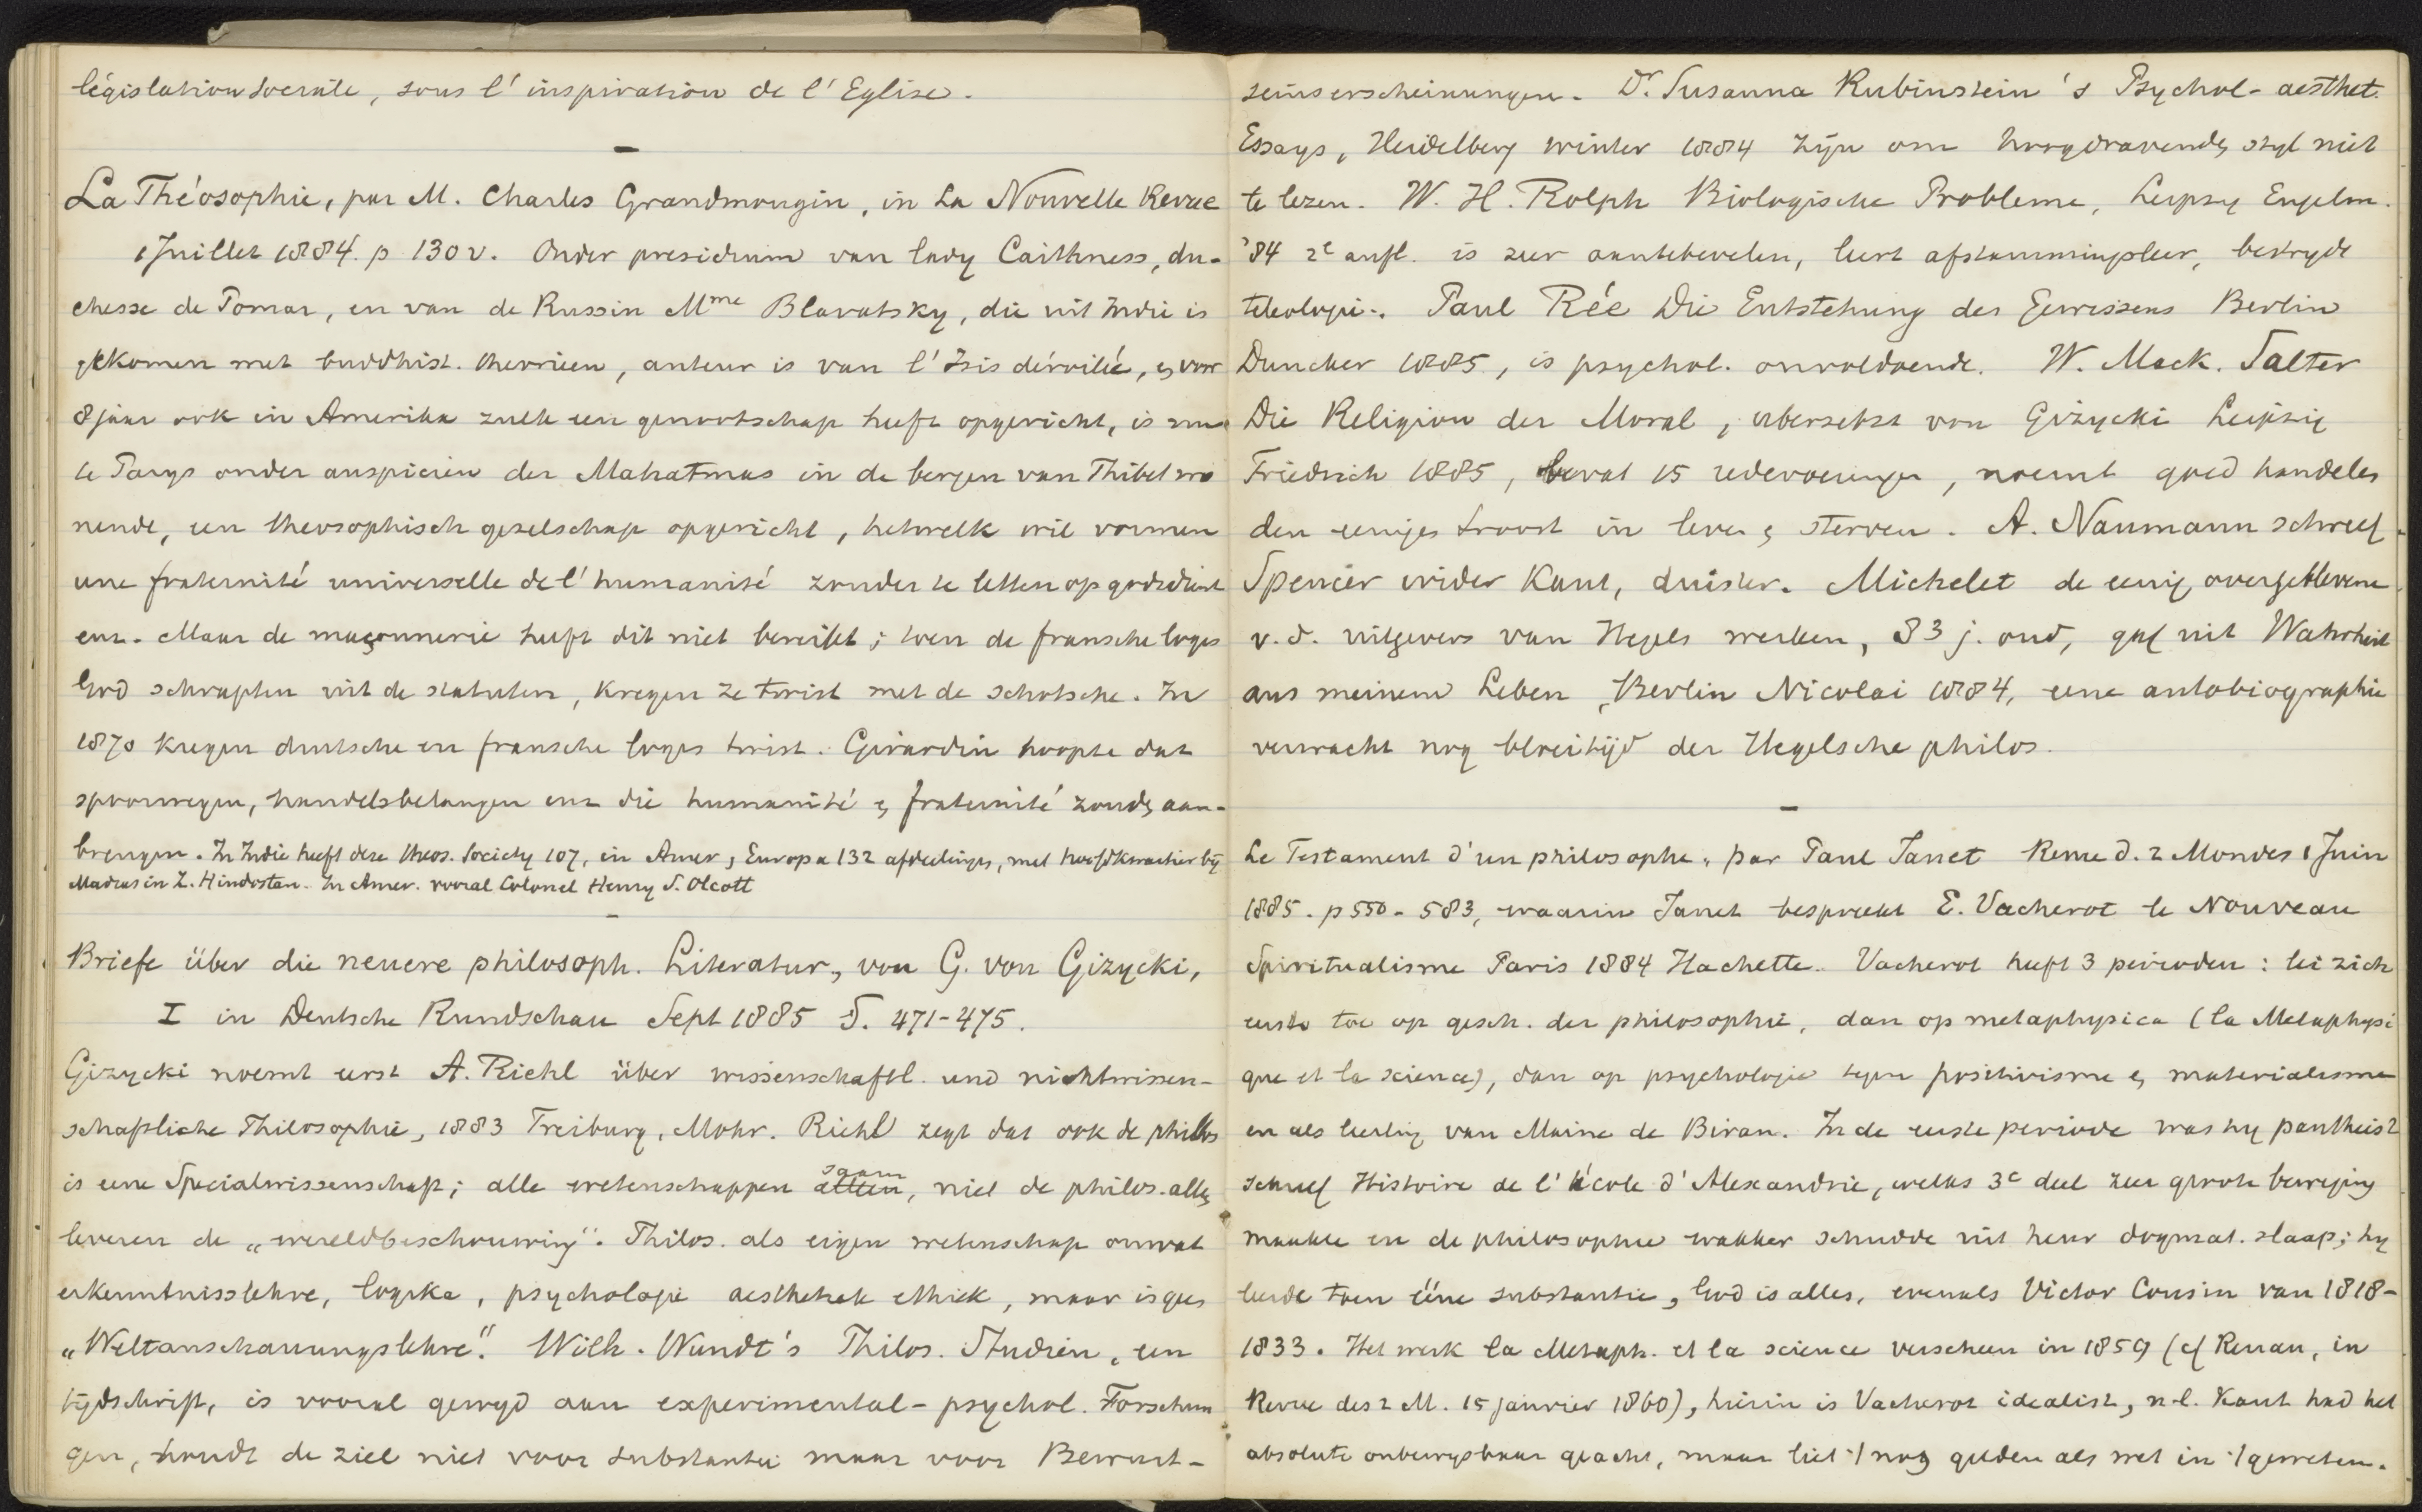 législation sociale, sous l'inspiration de l'Eglise.
La Théosophie, par M. Charles Grandmougin, in La Nouvelle Revue
1 Juillet 1884. p 130 v. Onder presidium van lady Caithness, du-
chesse de Pomar, en van de Russin Mme Blavatsky, die uit Indie is
gekomen met buddhist. theorieen, auteur is van l'Isis dévoilée, en voor
8 jaar ook in Amerika zulk een genootschap heeft opgericht, is nu
te Parys onder auspicien der Mahatmas in de bergen van Thibet wo
nende, een theosophisch gezelschap opgericht, hetwelk wil vormen
une fraternité universelle de l'humanité zonder te letten op godsdienst
enz. Maar de maçonnerie heeft dit niet bereikt; toen de fransche loges
God schrapten uit de statuten, kregen ze twist met de schotsche. In
1870 kregen duitsche en fransche loges twist. Girardin hoopte dat
spoorwegen, handelsbelangen enz die humanité en fraternité zouden aan-
brengen. In Indie heeft deze theos. Society 107, in Amer, Europa 132 afdeelingen, met hoofdkwartier bij
Madras in Z. Hindostan. In Amer. vooral Colonel Henry S. Olcott
Briefe über die neuere philosoph. Literatur, von G. von Gizycki,
I in Deutsche Rundschau Sept 1885 S. 471-475.
Gizycki noemt eerst A. Riehl über wissenschaftl. und nichtwissen-
schaftliche Philosophie, 1883 Freiburg, Mohr. Riehl zegt dat ook de philos
is eene Specialwissenschaft; alle wetenschappen saam, niet de philos. alleen
leveren de „wereldbeschouwing". Philos. als eigen wetenschap omvat
erkenntnisslehre, logika, psychologie aesthetek ethiek, maar is geen
„Weltanschauungslehre." Wilh. Wundt's Philos. Studien, een
tijdschrift, is vooral gewyd aan experimental-psychol. Forschun
gen, houdt de ziel niet voor substantie maar voor Bewust-
seinserscheinungen. Dr. Susanna Rubinstein's Psychol-aesthet.
Essays, Heidelberg winter 1884 zijn om hoogdravenden styl niet
te lezen. W. H. Rolph Biologische Probleme, Leipzig Engelm.
'84 2e aufl. is zeer aantebevelen, leert afstammingsleer, bestrydt
teleologie. Paul Rée Die Entstehung des Gewissens Berlin
Duncker 1885, is psychol. onvoldoende. W. Mack. Salter
Die Religion der Moral, übersetzt von Gizycki Leipzig
Friedrich 1885, bevat 15 redevoeringen, noemt goed handelen
den eenigen troost in leven en sterven. A. Naumann schreef
Spencer wider Kant, duister. Michelet de eenig overgeblevene
v. d. uitgevers van Hegels werken, 83 j. oud, gaf uit Wahrheit
aus meinem Leben, Berlin Nicolai 1884, eene autobiographie
verwacht nog bloeitijd der Hegelsche philos.
Le Testament d'un philosophe, par Paul Janet Revue d. 2 Mondes 1 Juin
1885. p 550-583, waarin Janet bespreekt E. Vacherot le Nouveau
Spiritualisme Paris 1884 Hachette. Vacherot heeft 3 perioden: lei zich
eerst toe op gesch. der philosophie, dan op metaphysica (la Metaphysi
que et la science), dan op psychologie tegen positivisme en materialisme
en als leerling van Maine de Biran. In de eerste periode was hy pantheist
schreef Histoire de l'école d'Alexandrie, welks 3e deel zeer groote beweging
maakte en de philosophie wakker schudde uit heur dogmat. slaap; hy
leerde toen ééne substantie, God is alles, evenals Victor Cousin van 1818-
1833. Het werk la Metaph. et la science verscheen in 1859 (cf Renan, in
Revue des 2 M. 15 janvier 1860), hierin is Vacherot idealist, n.l. Kant had het
absolute onbewysbaar geacht, maar liet 't nog gelden als wet in 't geweten.